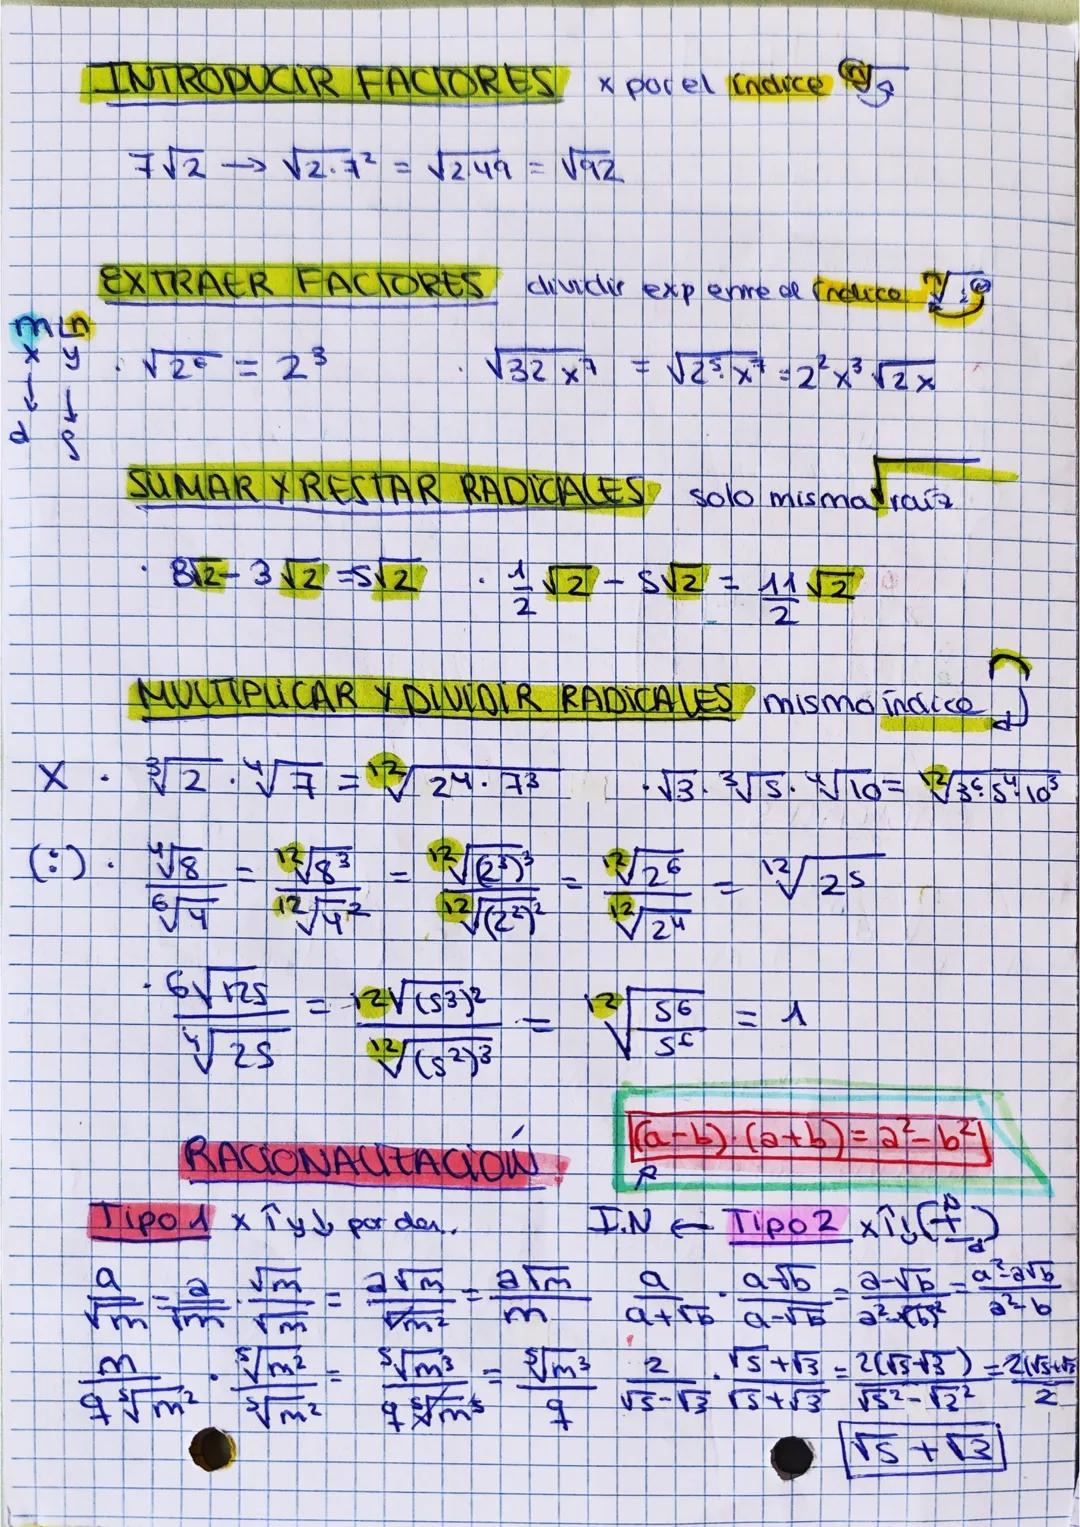 INTRODUCIR FACTORES x por el índice ⁿ√
7√2 → √2·7² = √2·49 = √92
EXTRAER FACTORES dividir exp entre el índice
m n
x y
d p
· √2⁶ = 2³ · √32x⁷ = √2⁵·x⁷ = 2²x³√2x
SUMAR Y RESTAR RADICALES solo misma raíz
· 8√2 - 3√2 = 5√2 · 1/2 √2 - 5√2 = 11/2 √2
MULTIPLICAR Y DIVIDIR RADICALES mismo índice
X · ³√2 · ⁴√7 = ¹²√2⁴·7³ · √3 · ³√5 · ⁴√10 = ¹²√3⁶·5⁴·10³
(:) · ⁴√8 / ⁶√4 = ¹²√8³ / ¹²√4² = ¹²√(2³)³ / ¹²√(2²)² = ¹²√2⁶ / ¹²√2⁴ = ¹²√2⁵
· 6√125 / ⁴√25 = 12√(5³)² / ¹²√(5²)³ = ¹²√5⁶/5⁶ = 1
(a-b)·(a+b) = a²-b²
RACIONALIZACIÓN
Tipo 1 x ↑y↓ por den. I.N ← Tipo 2 x↑y↓(±)
a/√m = a/√m · √m/√m = a√m/√m² = a√m/m a/a+√b · a-√b/a-√b = a-√b/a²-(√b)² = a²-a√b/a²-b
m/q⁵√m² · ⁵√m²/⁵√m² = ⁵√m³/q⁵√m⁵ = ⁵√m³/q 2/√5-√3 · √5+√3/√5+√3 = 2(√5-√3)/√5²-√3² = 2(√5+√3/2
√5 + √3